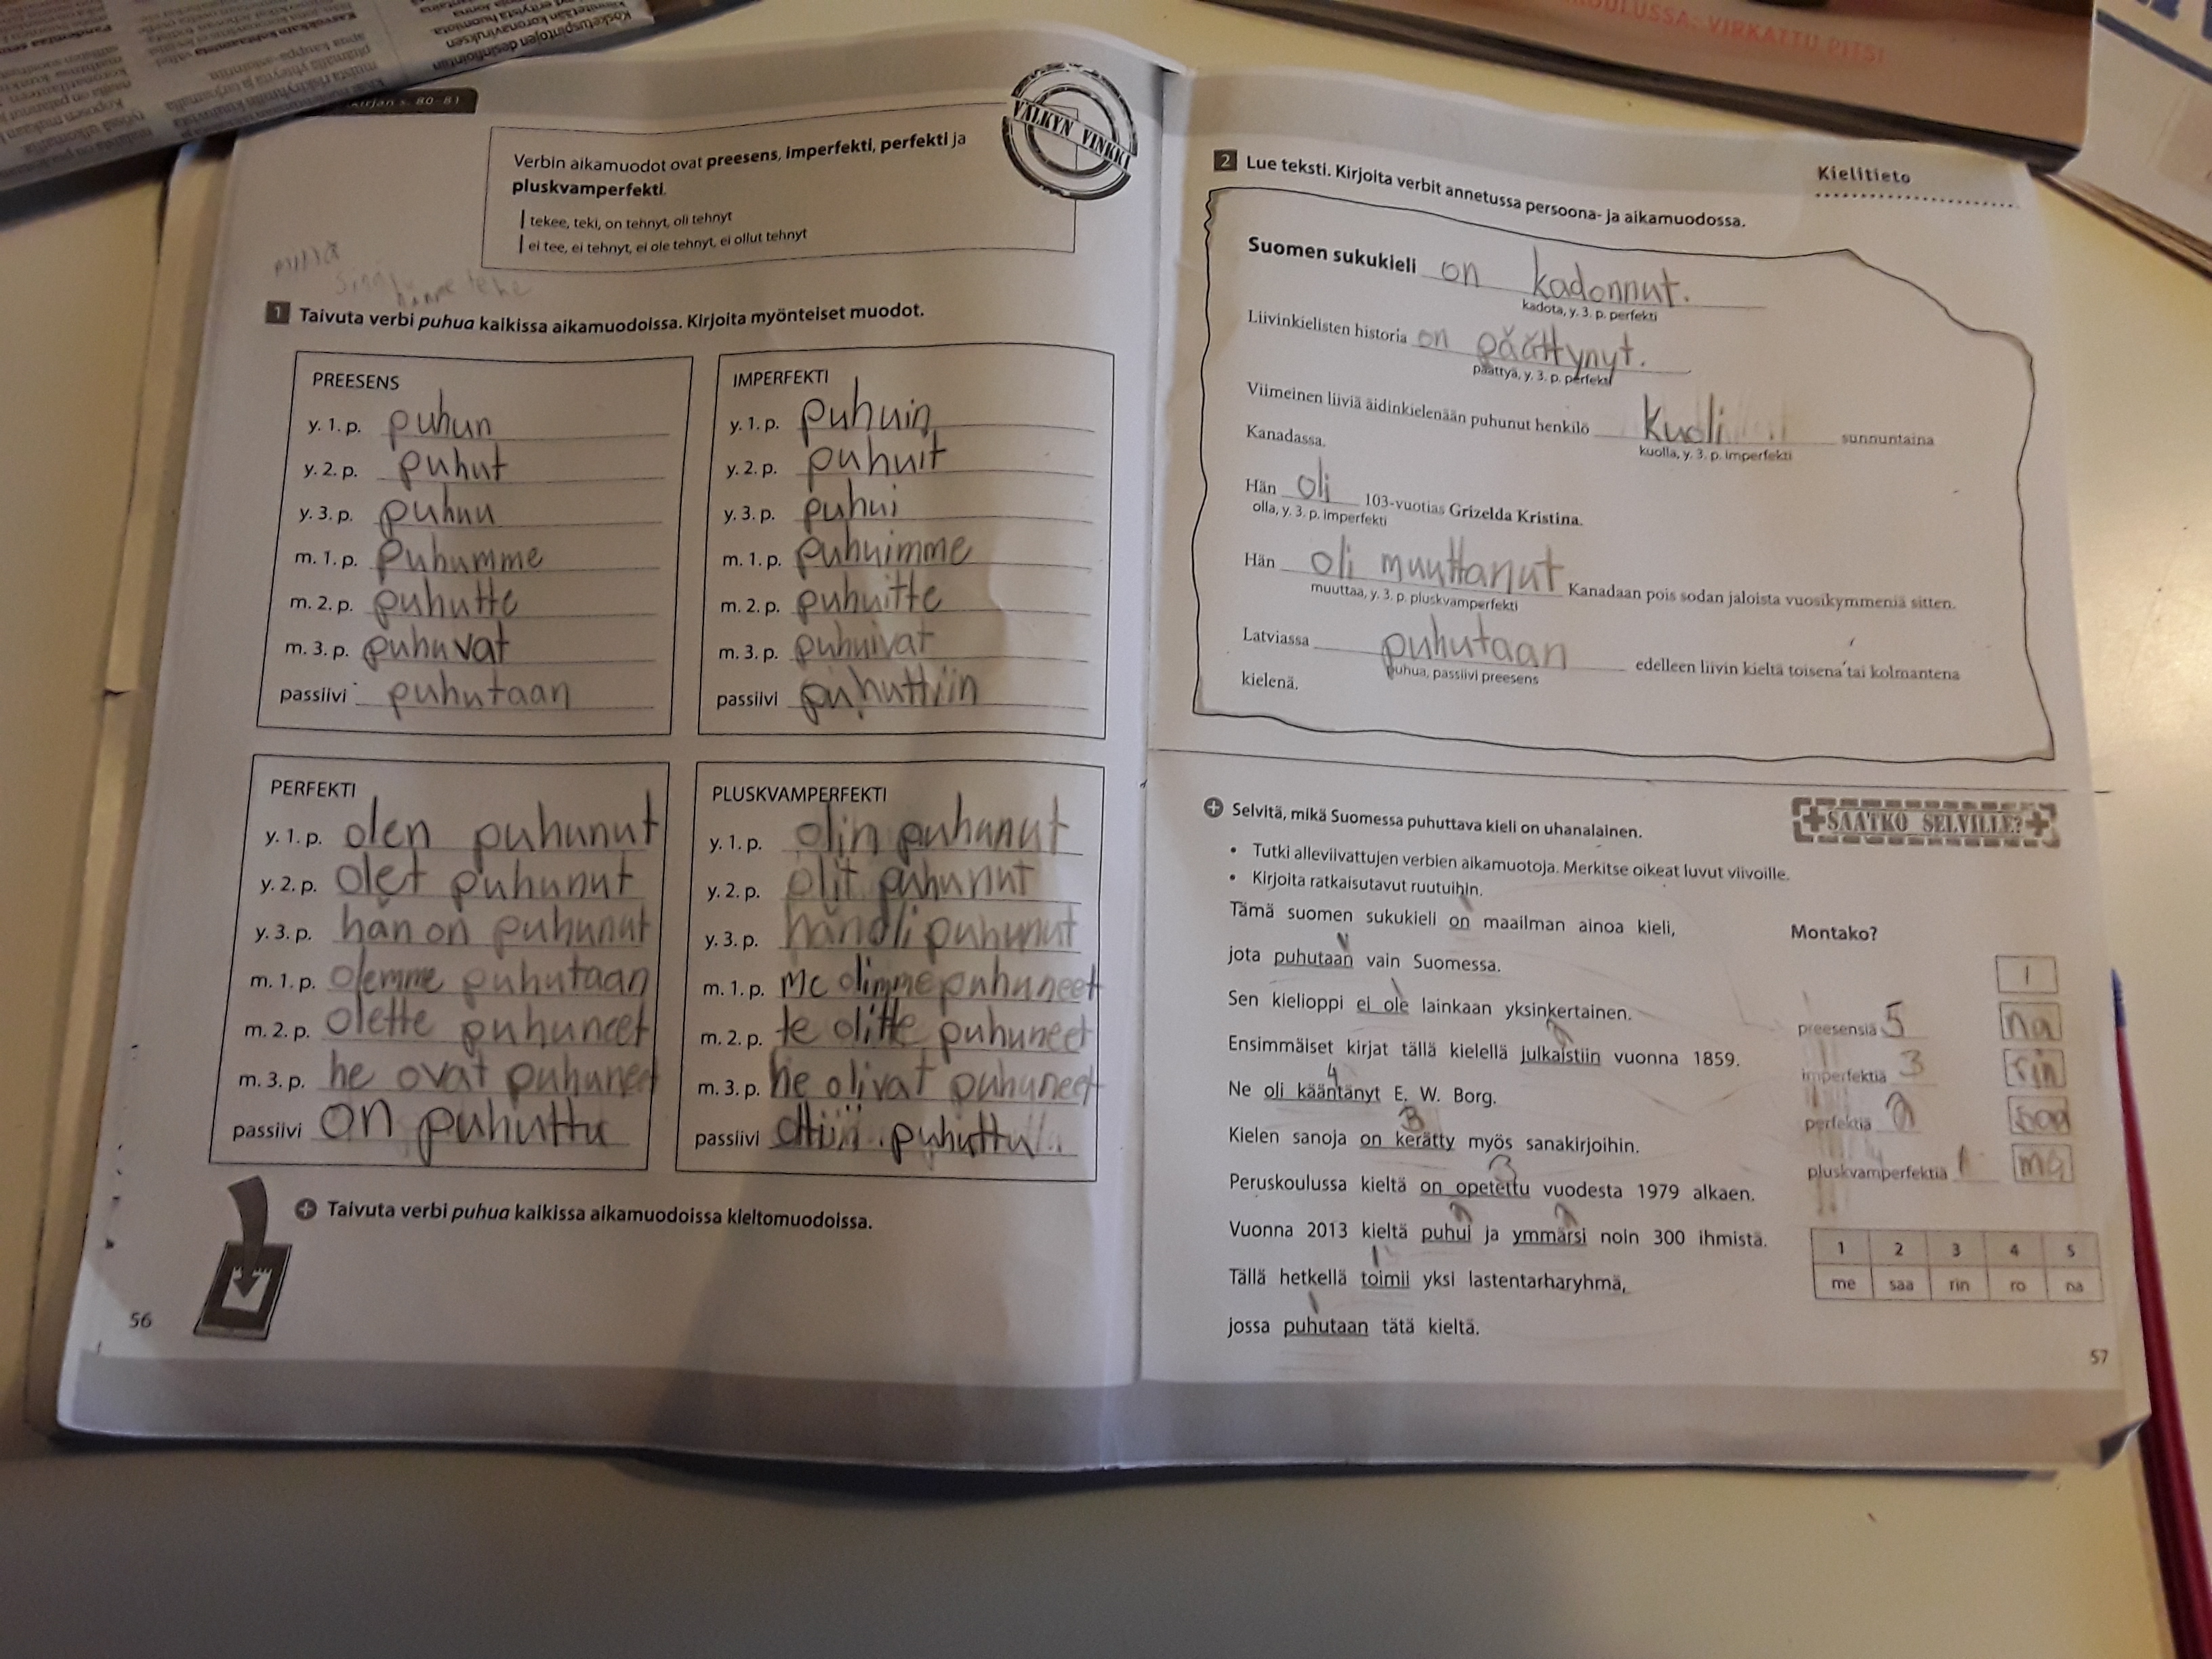 KOULUSSA: VIRKATTU PITSI
Kosketuspintojen desinfiointiin
koronaviruksen
kirjan s. 80–81
VALKYN VINKKI
Verbin aikamuodot ovat preesens, imperfekti, perfekti ja
pluskvamperfekti.
tekee, teki, on tehnyt, oli tehnyt
ei tee, ei tehnyt, ei ole tehnyt, ei ollut tehnyt
1 Taivuta verbi puhua kaikissa aikamuodoissa. Kirjoita myönteiset muodot.
PREESENS
y. 1. p. puhun
y. 2. p. puhut
y. 3. p. puhuu
m. 1. p. puhumme
m. 2. p. puhutte
m. 3. p. puhuvat
passiivi puhutaan
IMPERFEKTI
y. 1. p. puhuin
y. 2. p. puhuit
y. 3. p. puhui
m. 1. p. puhuimme
m. 2. p. puhuitte
m. 3. p. puhuivat
passiivi puhuttiin
PERFEKTI
y. 1. p. olen puhunut
y. 2. p. olet puhunut
y. 3. p. hän on puhunut
m. 1. p. olemme puhutaan
m. 2. p. olette puhuneet
m. 3. p. he ovat puhuneet
passiivi on puhuttu
PLUSKVAMPERFEKTI
y. 1. p. olin puhunut
y. 2. p. olit puhunut
y. 3. p. hän oli puhunut
m. 1. p. me olimme puhuneet
m. 2. p. te olitte puhuneet
m. 3. p. he olivat puhuneet
passiivi puhuttu
+ Taivuta verbi puhua kaikissa aikamuodoissa kieltomuodoissa.
56
Kielitieto
2 Lue teksti. Kirjoita verbit annetussa persoona- ja aikamuodossa.
Suomen sukukieli on kadonnut.
kadota, y. 3. p. perfekti
Liivinkielisten historia on päättynyt.
päättyä, y. 3. p. perfekti
Viimeinen liiviä äidinkielenään puhunut henkilö kuoli sunnuntaina
kuolla, y. 3. p. imperfekti
Kanadassa.
Hän oli 103-vuotias Grizelda Kristina.
olla, y. 3. p. imperfekti
Hän oli muuttanut Kanadaan pois sodan jaloista vuosikymmeniä sitten.
muuttaa, y. 3. p. pluskvamperfekti
Latviassa puhutaan edelleen liivin kieltä toisena tai kolmantena
puhua, passiivi preesens
kielenä.
+ Selvitä, mikä Suomessa puhuttava kieli on uhanalainen.
SAATKO SELVILLE?
• Tutki alleviivattujen verbien aikamuotoja. Merkitse oikeat luvut viivoille.
• Kirjoita ratkaisutavut ruutuihin.
Tämä suomen sukukieli on maailman ainoa kieli,
jota puhutaan vain Suomessa.
Sen kielioppi ei ole lainkaan yksinkertainen.
Ensimmäiset kirjat tällä kielellä julkaistiin vuonna 1859.
4
Ne oli kääntänyt E. W. Borg.
3
Kielen sanoja on kerätty myös sanakirjoihin.
3
Peruskoulussa kieltä on opetettu vuodesta 1979 alkaen.
Vuonna 2013 kieltä puhui ja ymmärsi noin 300 ihmistä.
1
Tällä hetkellä toimii yksi lastentarharyhmä,
1
jossa puhutaan tätä kieltä.
Montako?
1
preesensiä 5 na
imperfektiä 3 rin
perfektiä 2 saa
pluskvamperfektiä 1
1 2 3 4 5
me saa rin ro na
57